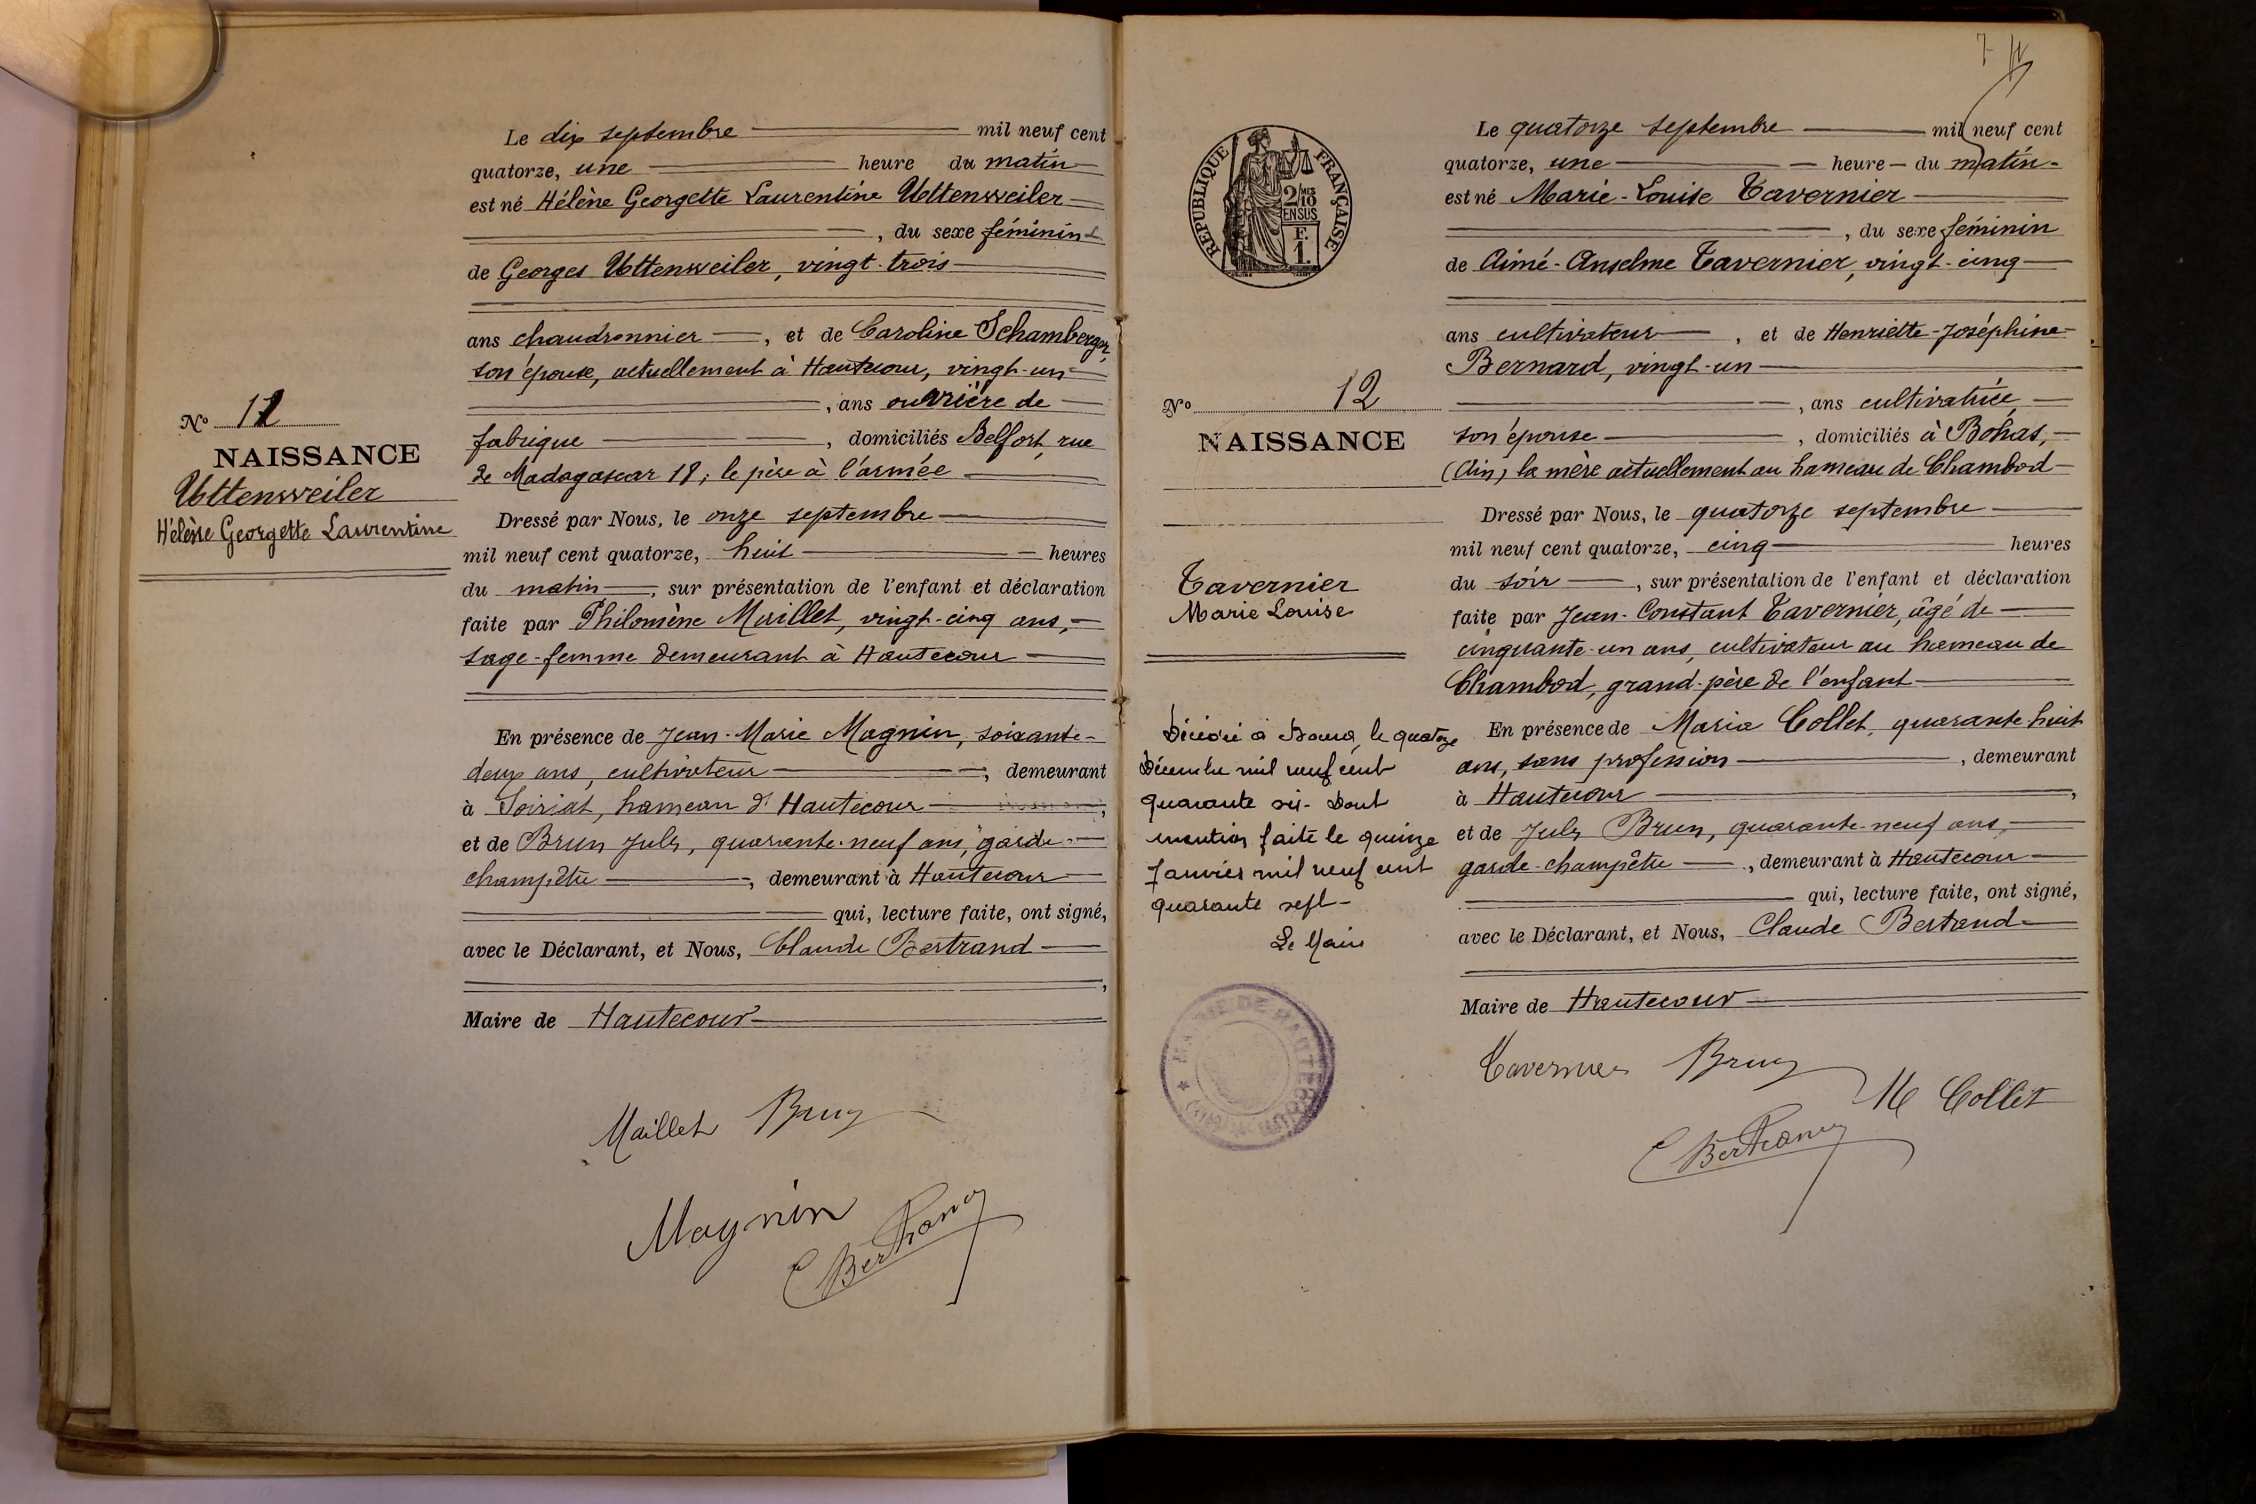 Le dix septembre mil neuf cent
quatorze, une heure du matin
est né Hélène Georgette Laurentine Uttenweiler
, du sexe féminin
de Georges Uttenweiler, vingt-trois
ans chaudronnier, et de Caroline Schamberger,
son épouse, actuellement à Hautecour, vingt-un
, ans ouvrière de
fabrique, domiciliés Belfort, rue
de Madagascar 18; le père à l'armée
Dressé par Nous, le onze septembre
mil neuf cent quatorze, huit heures
du matin, sur présentation de l'enfant et déclaration
faite par Philomène Maillet, vingt-cinq ans,
sage-femme demeurant à Hautecour
En présence de Jean-Marie Magnin, soixante-
deux ans, cultivateur, demeurant
à Soiriat, hameau d'Hautecour,
et de Brun Jules, quarante-neuf ans, garde-
champêtre, demeurant à Hautecour
qui, lecture faite, ont signé,
avec le Déclarant, et Nous, Claude Bertrand
,
Maire de Hautecour
Maillet Brun
Magnin
C Bertrand
No 11
NAISSANCE
Uttenweiler
Hélène Georgette Laurentine
7
RÉPUBLIQUE FRANÇAISE
2/10
EN SUS
F.
1.
No 12
NAISSANCE
Tavernier
Marie Louise
Décédée à Bourg, le quatorze
Décembre mil neuf cent
quarante six - Dont
mention faite le quinze
Janvier mil neuf cent
quarante sept -
Le Maire
MAIRIE DE HAUTECOUR (AIN)
Le quatorze septembre mil neuf cent
quatorze, une heure du matin
est né Marie-Louise Tavernier
, du sexe féminin
de Aimé-Anselme Tavernier, vingt-cinq
ans cultivateur, et de Henriette-Joséphine
Bernard, vingt-un
, ans cultivatrice
son épouse, domiciliés à Bohas,
(Ain) la mère actuellement au hameau de Chambod
Dressé par Nous, le quatorze septembre
mil neuf cent quatorze, cinq heures
du soir, sur présentation de l'enfant et déclaration
faite par Jean-Constant Tavernier, âgé de
cinquante-un ans, cultivateur au hameau de
Chambod, grand-père de l'enfant
En présence de Maria Collet, quarante-huit
ans, sans profession, demeurant
à Hautecour,
et de Jules Brun, quarante-neuf ans,
garde-champêtre, demeurant à Hautecour
qui, lecture faite, ont signé,
avec le Déclarant, et Nous, Claude Bertrand
Maire de Hautecour
Tavernier Brun
M Collet
C Bertrand